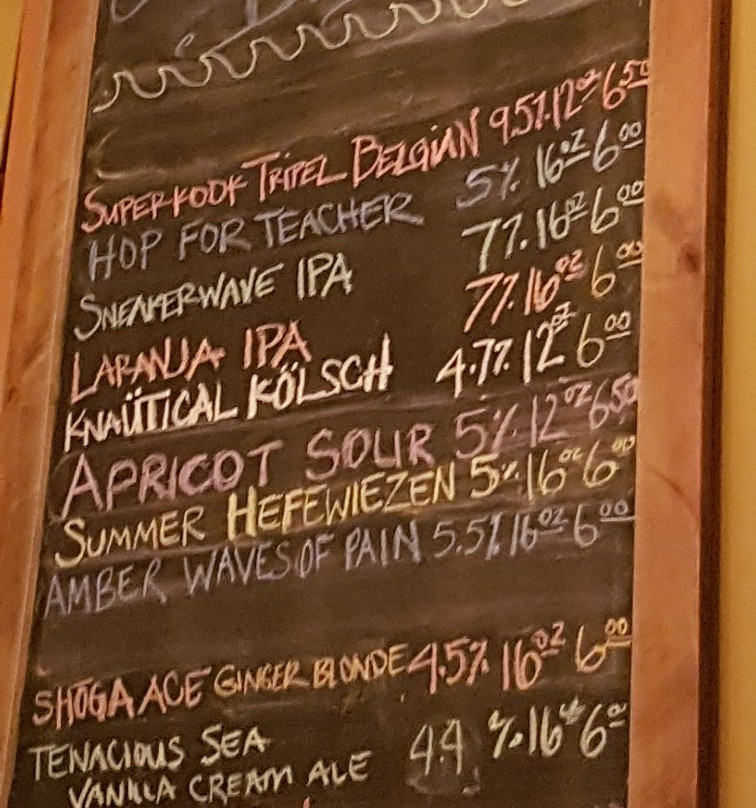 SUPERKOOK TRIPEL BELGIAN 9.5% 12oz 6 50
HOP FOR TEACHER 5% 16oz 6 00
SNEAKERWAVE IPA 7% 16oz 6 00
LARANJA IPA 7% 16oz 6 00
KNAÜTICAL KÖLSCH 4.7% 12oz 6 00
APRICOT SOUR 5% 12oz 6 50
SUMMER HEFEWIEZEN 5% 16oz 6 00
AMBER WAVES OF PAIN 5.5% 16oz 6 00
SHOGA ACE GINGER BLONDE 4.5% 16oz 6 00
TENACIOUS SEA 4.4 % 16 6
VANILLA CREAM ALE